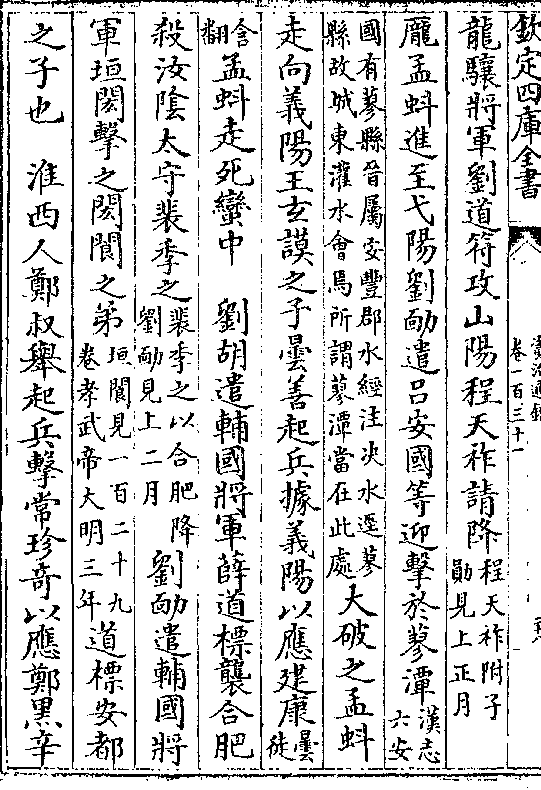 欽定四庫全書
資治通鑑
卷一百三十一
龍驤將軍劉道符攻山陽程天祚請降程天祚附子勛見上正月
龎孟蚪進至弋陽劉勔遣呂安國等迎擊於蓼潭漢志六安
國有蓼縣晉屬安豐郡水經注決水逕蓼縣故城東灌水會焉所謂蓼潭當在此處大破之孟蚪
走向義陽王玄謨之子曇善起兵據義陽以應建康曇徒
含翻孟蚪走死蠻中　劉胡遣輔國將軍薛道標襲合肥
殺汝陰太守裴季之裴季之以合肥降劉勔見上二月劉勔遣輔國將
軍垣閎擊之閎閬之弟垣閬見一百二十九卷孝武帝大明三年道標安都
之子也　淮西人鄭叔舉起兵擊常珍奇以應鄭黑辛